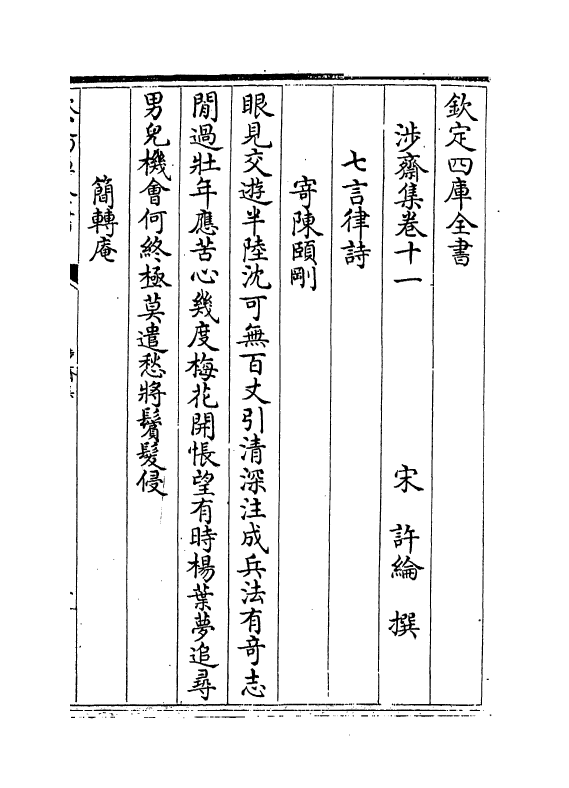 欽定四庫全書
涉齋集卷十一
宋 許綸 撰
七言律詩
寄陳頤剛
眼見交遊半陸沈可無百丈引清深注成兵法有奇志
閒過壯年應苦心幾度梅花開悵望有時楊葉夢追尋
男兒機會何終極莫遣愁將鬢髮侵
簡轉庵